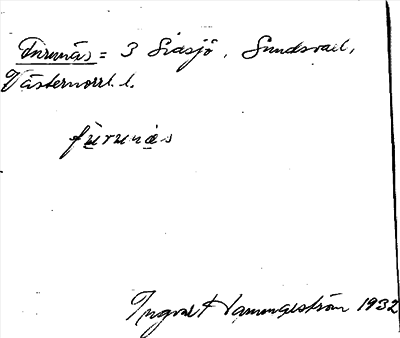 Furunäs = 3 Sidsjö, Sundsvall,
Västernorrl. l.
furunäs
Ingvar Hammarström 1932